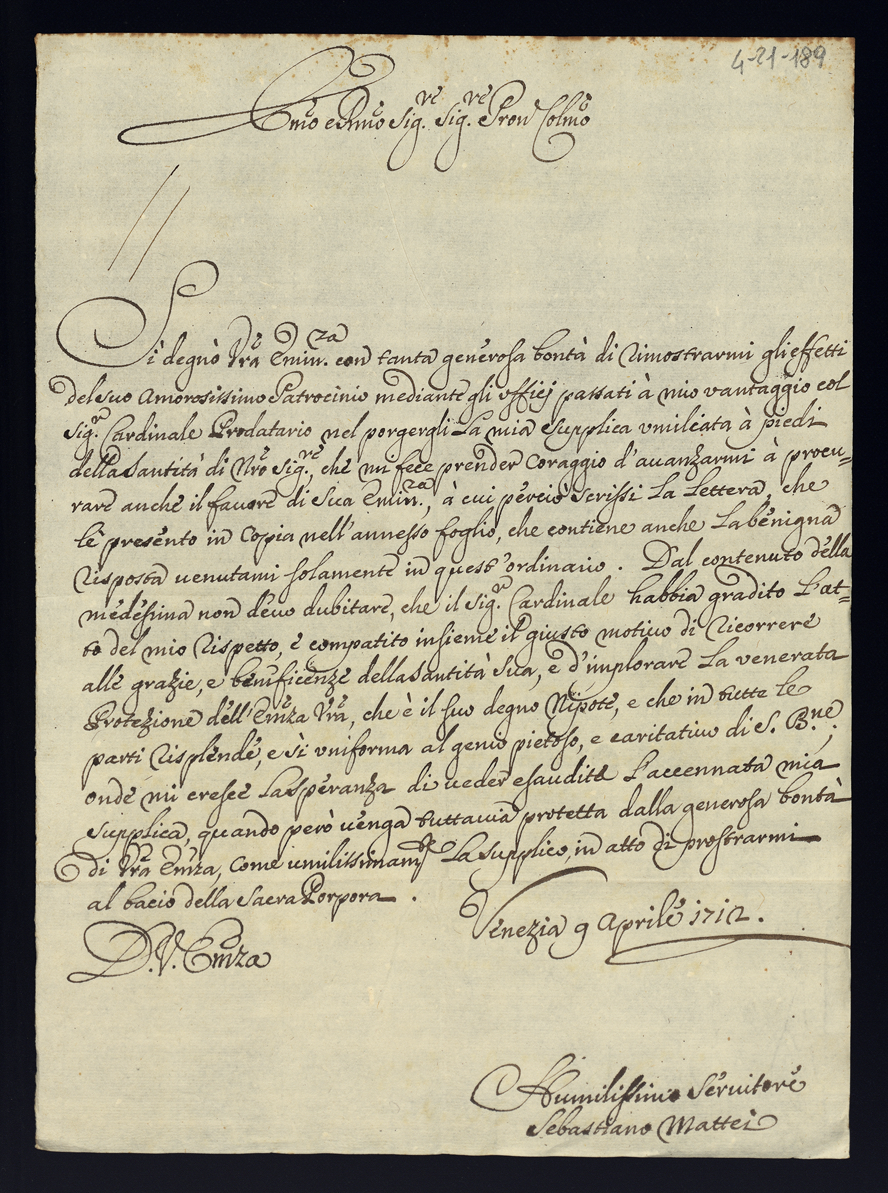 4-21-189
Emo e Rmo Sig.re Sig.re Pron Colmo
Si degnò Vra Emin.za con tanta generosa bontà di rimostrarmi gli effetti
del suo Amorosissimo Patrocinio mediante gli ufficj passati à mio vantaggio col
Sig.r Cardinale Prodatario nel porgergli la mia supplica umiliata à piedi
della Santità di Nro Sig.re, che mi fece prender coraggio d'avanzarmi à procu=
rare anche il favore di Sua Emin.za, à cui perciò scrissi la lettera, che
le presento in Copia nell'annesso foglio, che contiene anche la benigna
risposta venutami solamente in quest'ordinario. Dal contenuto della
medesima non devo dubitare, che il Sig.r Cardinale habbia gradito l'at=
to del mio rispetto, e compatito insieme il giusto motivo di ricorrere
alle grazie, e beneficenze della Santità Sua, e d'implorare la venerata
Protezione dell'Emza Vra, che è il suo degno Nipote, e che in tutte le
parti risplende, e si uniforma al genio pietoso, e caritativo di S. B.ne;
onde mi cresce la speranza di veder esaudita l'accennata mia
supplica, quando però venga tuttavia protetta dalla generosa bontà
di Vra Emza, come umilissimam.te la supplico, in atto di prostrarmi
al bacio della Sacra Porpora.
Venezia 9 Aprile 1712.
D. V. Emza
Humilissimo Servitore
Sebastiano Mattei